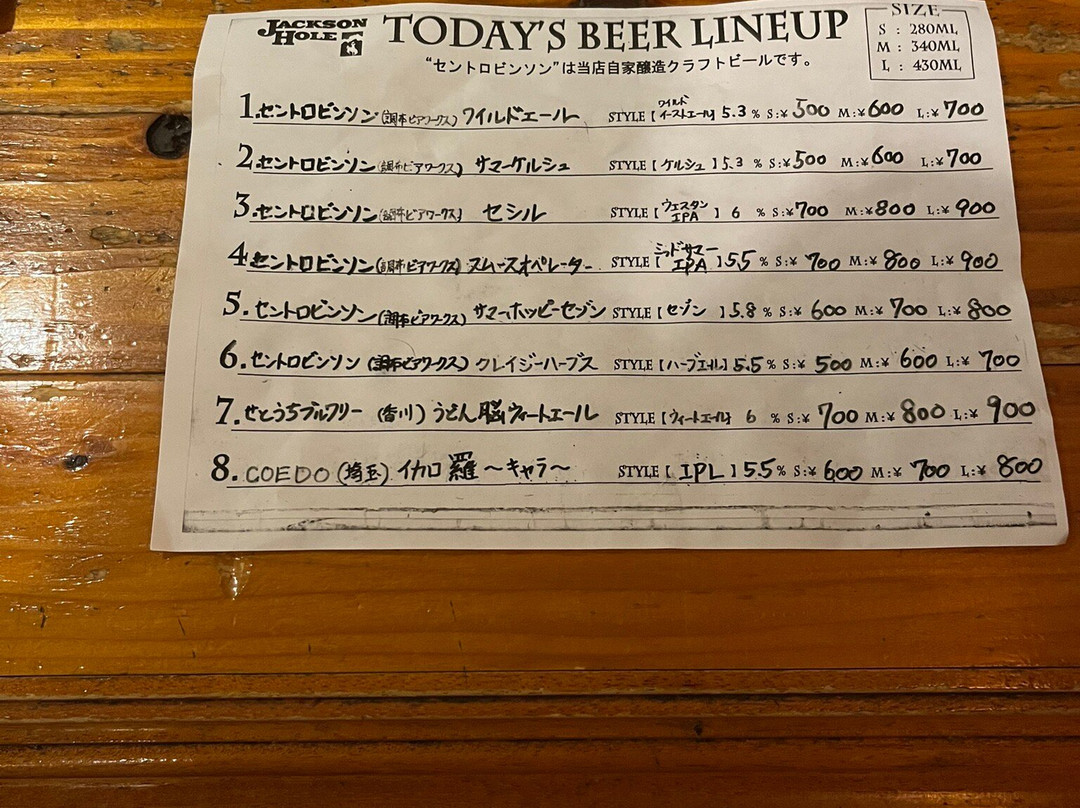 JACKSON HOLE
TODAY'S BEER LINEUP
"セントロビンソン"は当店自家醸造クラフトビールです。
SIZE
S : 280ML
M : 340ML
L : 430ML
1. セントロビンソン (調布ビアワークス) ワイルドエール STYLE【ワイルドイーストエール】5.3 % S:¥500 M:¥600 L:¥700
2. セントロビンソン (調布ビアワークス) サマーケルシュ STYLE【ケルシュ】5.3 % S:¥500 M:¥600 L:¥700
3. セントロビンソン (調布ビアワークス) セシル STYLE【ウエスタンIPA】6 % S:¥700 M:¥800 L:¥900
4. セントロビンソン (調布ビアワークス) スムースオペレーター STYLE【ミッドサマーIPA】5.5 % S:¥700 M:¥800 L:¥900
5. セントロビンソン (調布ビアワークス) サマーホッピーセゾン STYLE【セゾン】5.8 % S:¥600 M:¥700 L:¥800
6. セントロビンソン (調布ビアワークス) クレイジーハーブス STYLE【ハーブエール】5.5 % S:¥500 M:¥600 L:¥700
7. せとうちブルワリー (香川) うどん脳ウィートエール STYLE【ウィートエール】6 % S:¥700 M:¥800 L:¥900
8. COEDO (埼玉) イカロ羅 〜キャラ〜 STYLE【IPL】5.5 % S:¥600 M:¥700 L:¥800